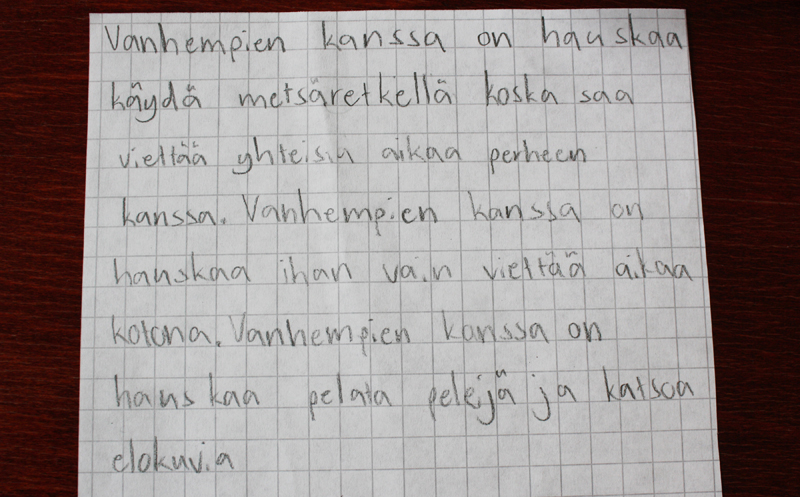 Vanhempien kanssa on hauskaa
käydä metsäretkellä koska saa
viettää yhteisiä aikaa perheen
kanssa. Vanhempien kanssa on
hauskaa ihan vain viettää aikaa
kotona. Vanhempien kanssa on
hauskaa pelata pelejä ja katsoa
elokuvia